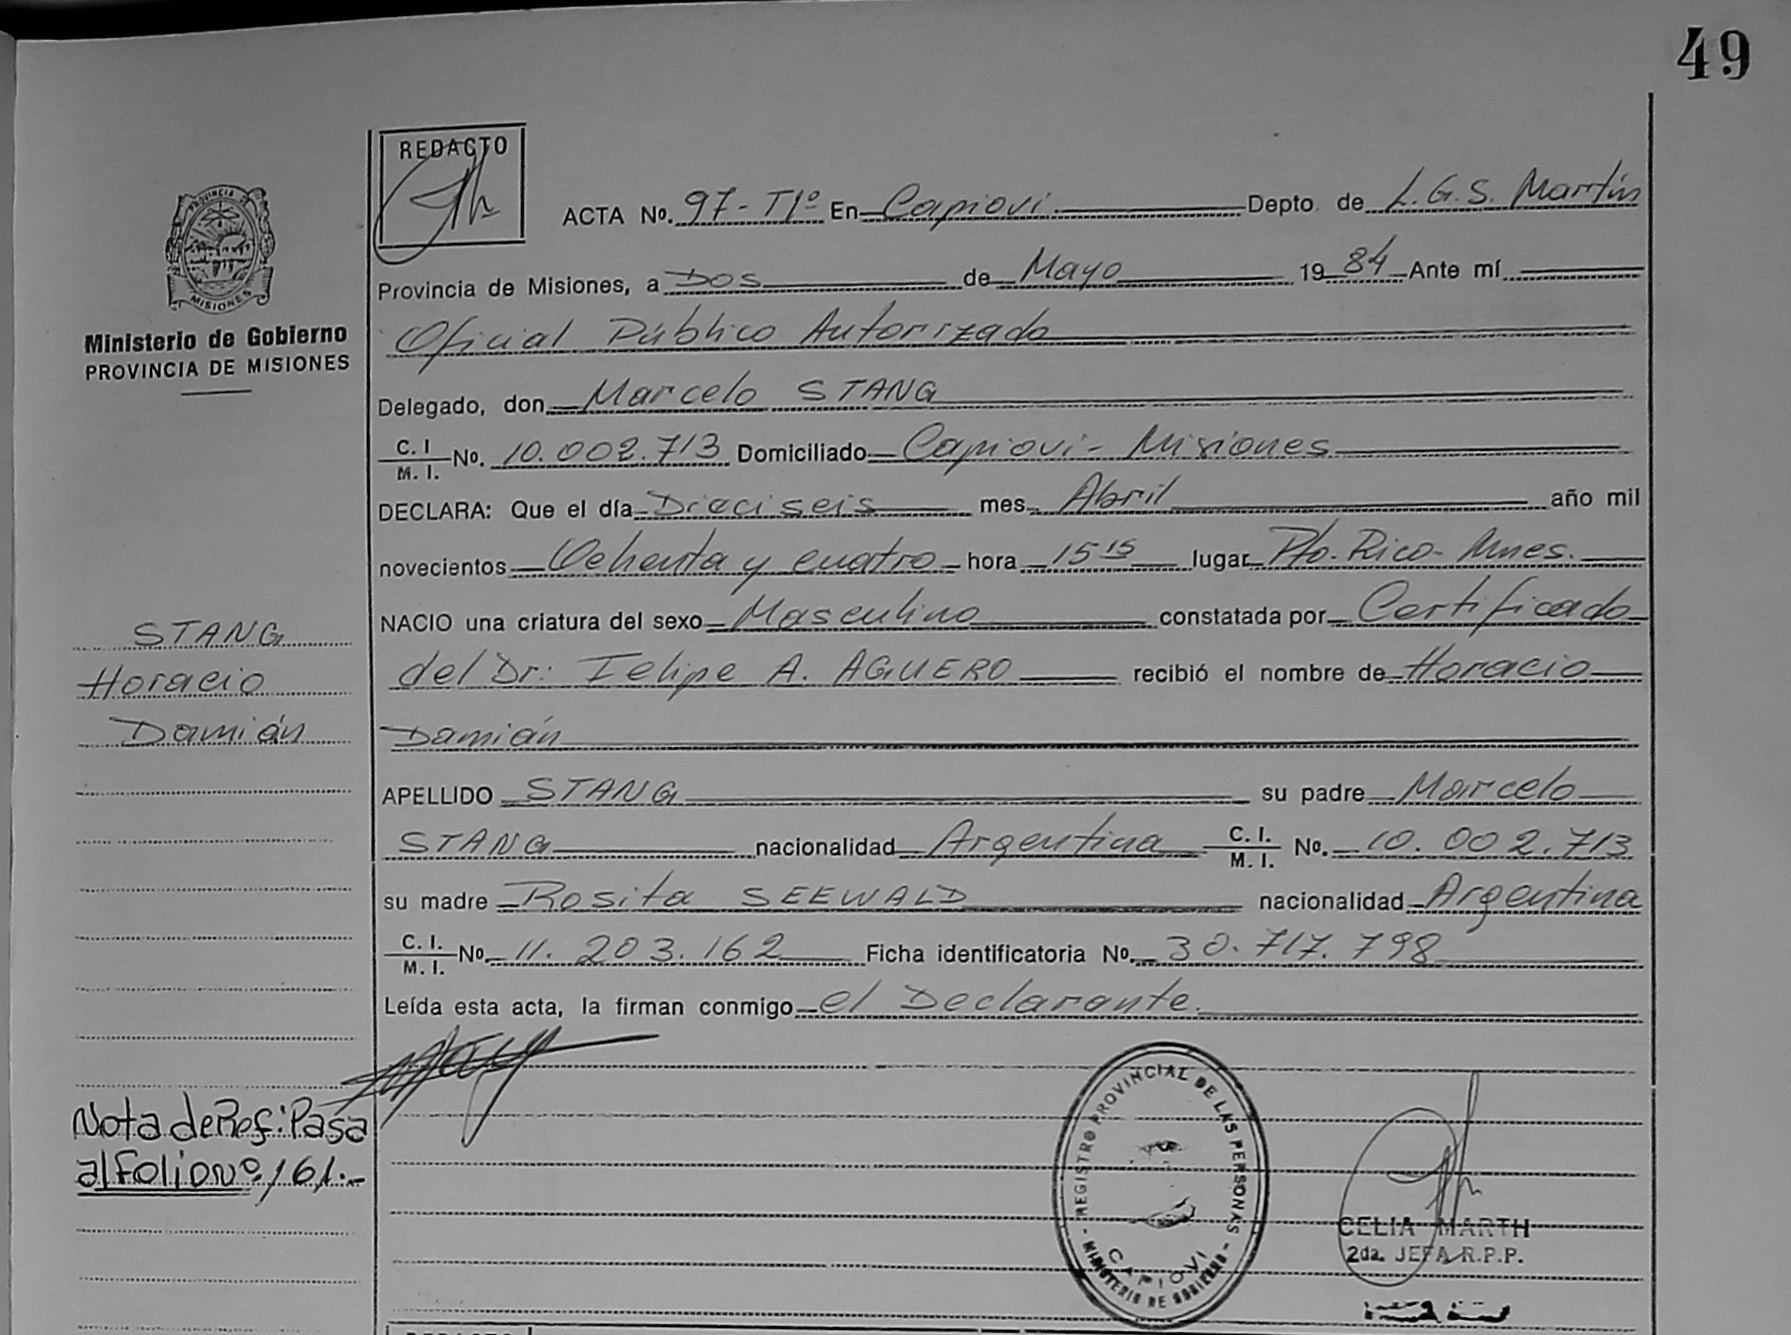 49
REDACTO
ACTA No. 97-T1º En Capiovi Depto. de L.G.S. Martín
Provincia de Misiones, a Dos de Mayo 1984 Ante mí
Oficial Público Autorizado
Delegado, don Marcelo STANG
C. I. / M. I. No. 10.002.713 Domiciliado Capiovi- Misiones
DECLARA: Que el día Dieciseis mes Abril año mil
novecientos Ochenta y cuatro hora 15 15 lugar Pto. Rico- Mnes.
NACIO una criatura del sexo Masculino constatada por Certificado
del Dr: Felipe A. AGUERO recibió el nombre de Horacio
Damián
APELLIDO STANG su padre Marcelo
STANG nacionalidad Argentina C. I. / M. I. No. 10.002.713
su madre Rosita SEEWALD nacionalidad Argentina
C. I. / M. I. No. 11.203.162 Ficha identificatoria No. 30.717.798
Leída esta acta, la firman conmigo el Declarante.
PROVINCIA DE
MISIONES
Ministerio de Gobierno
PROVINCIA DE MISIONES
STANG
Horacio
Damián
Nota de Ref: Pasa
al folio nº 161.-
REGISTRO PROVINCIAL DE LAS PERSONAS
CAPIOVI
- MINISTERIO DE GOBIERNO -
CELIA MARTH
2da. JEFA R.P.P.